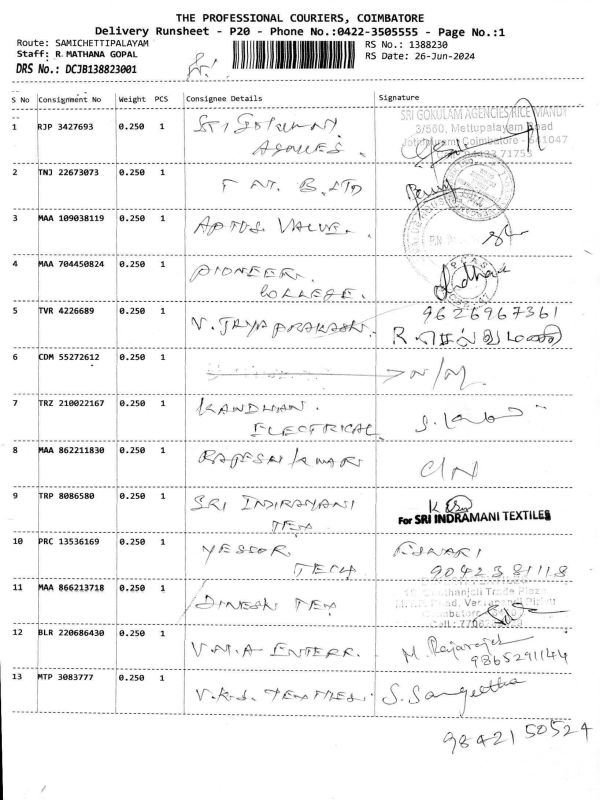 THE PROFESSIONAL COURIERS, COIMBATORE
Delivery Runsheet - P20 - Phone No.:0422-3505555 - Page No.:1
Route: SAMICHETTIPALAYAM RS No.: 1388230
Staff: R. MATHANA GOPAL RS Date: 26-Jun-2024
DRS No.: DCJB138823001
S No Consignment No Weight PCS Consignee Details Signature
SRI GOKULAM AGENCIES/RICE MANDY
1 RJP 3427693 0.250 1 SRI GOKULAM 3/560, Mettupalayam Road
Coimbatore - 641047
2 TNJ 22673073 0.250 1 B. LTD
3 MAA 109038119 0.250 1 APTUS VALUE.
4 MAA 704450824 0.250 1 PIONEER.
COLLEGE.
5 TVR 4226689 0.250 1 V. JAYAPRAKASH. 9626967361
R. செல்வமணி
6 CDM 55272612 0.250 1 N/M.
7 TRZ 210022167 0.250 1 KANDHAN.
ELECTRICAL
8 MAA 862211830 0.250 1 C/N
9 TRP 8086580 0.250 1 SRI INDIRAMANI
TEX For SRI INDRAMANI TEXTILES
10 PRC 13536169 0.250 1
TECH 9042381118
11 MAA 866213718 0.250 1 DINESH TEX
12 BLR 220686430 0.250 1 V.M.A ENTERR. M. Rajarajan
9865291144
13 MTP 3083777 0.250 1 V.K.S. TEXTILES. S. Sangeetha
9842150524